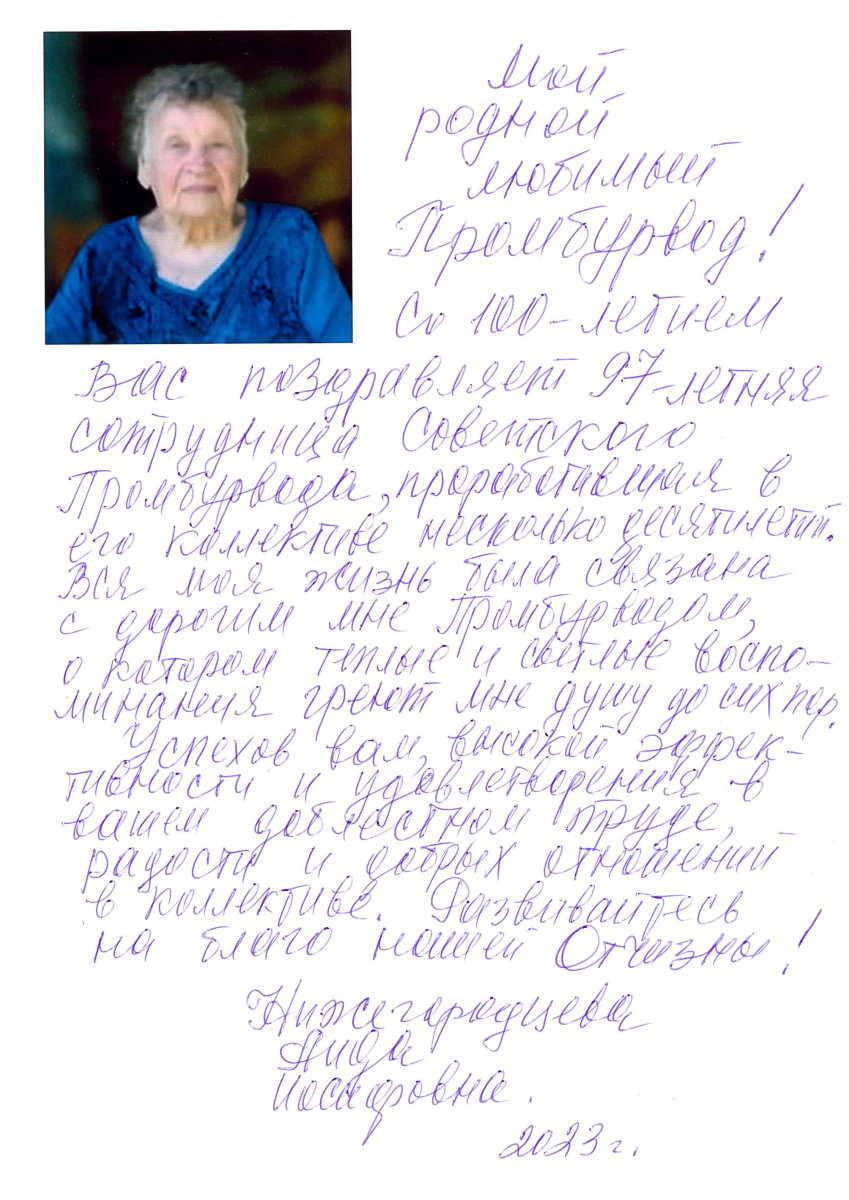 Мой
родной
любимый
Промбурвод!
Со 100-летием
Вас поздравляет 97-летняя
сотрудница Советского
Промбурвода, проработавшая в
его коллективе несколько десятилетий.
Вся моя жизнь была связана
с дорогим мне Промбурводом,
о котором теплые и светлые воспо-
минания греют мне душу до сих пор.
Успехов вам, высокой эффек-
тивности и удовлетворения в
вашем доблестном труде,
радости и добрых отношений
в коллективе. Развивайтесь
на благо нашей Отчизны!
Нижегородцева
Аида
Иосифовна.
2023 г.